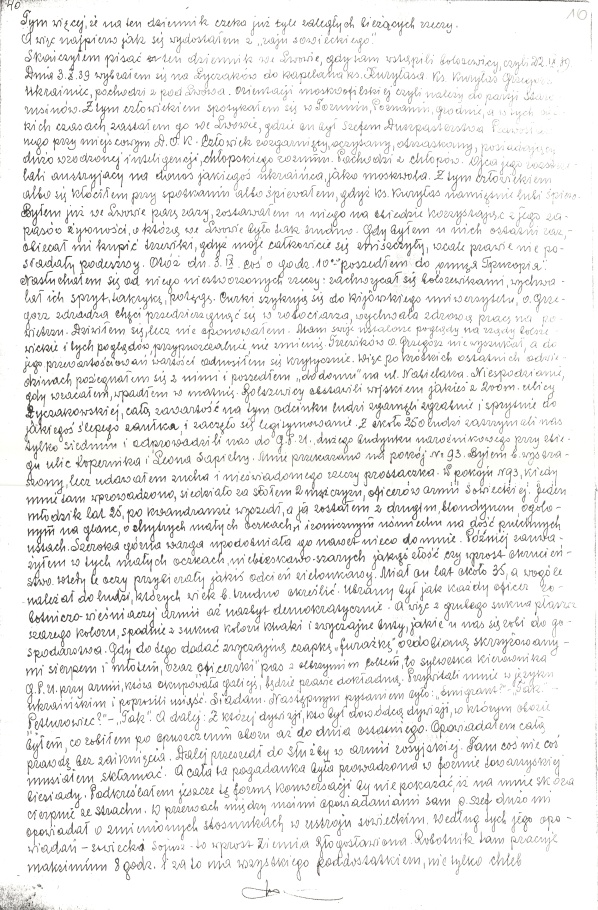 40
10
Tym więcej, że na ten dziennik czeka już tyle zaległych bieżących rzeczy.
A więc najpierw jak się wydostałem z „raju sowieckiego".
Skończyłem pisać ten dziennik we Lwowie, gdy tam wstąpili bolszewicy, czyli 22.IX.39
Dnia 3.X.39 wybrałem się na Łyczaków do kapelana ks. Kuryłasa. Ks. Kuryłas Grzegorz
Ukrainiec, pochodzi z pod Lwowa. Orientacji moskwofilskiej czyli należy do partji Staro-
rusinów. Z tym człowiekiem spotykałem się w Toruniu, Poznaniu, Grodnie, a w tych
kich czasach zastałem go we Lwowie, gdzie on był Szefem Duszpasterstwa
nego przy miejscowym D.O.K. Człowiek rozgarnięty, oczytany, obtrzaskany, posiadający
dużo wrodzonej inteligencji, chłopskiego rozumu. Pochodzi z chłopów. Ojca jego rozstrze-
lali austryjacy na donos jakiegoś ukraińca, jako moskwofila. Z tym człowiekiem
albo się kłóciłem przy spotkaniu albo śpiewałem, gdyż ks. Kuryłas namiętnie lubi śpiew.
Byłem już we Lwowie parę razy, zostawałem u niego na obiedzie korzystając z jego za-
pasów żywności, o którą we Lwowie było tak trudno. Gdy byłem u nich ostatni raz,
obiecał mi kupić trzewiki, gdyż moje całkowicie się zniszczyły, wcale prawie nie po-
siadały podeszwy. Otóż dn. 3. coś o godz. 10 poszedłem do
Nasłuchałem się od niego niestworzonych rzeczy: zachwycał się bolszewikami, wychwa-
lał ich spryt, taktykę, potęgę. Curki szykują się do Kijowskiego uniwersytetu, o. Grze-
gorz zdradza chęci przedzierzgnąć się w robociarza, wychwala zdrową pracę na po-
wietrzu. Dziwiłem się, lecz nie oponowałem. Mam swoje ustalone poglądy na rządy bolsze-
wickie i tych poglądów, przypuszczalnie nie zmienię. Trzewików o. Grzegorz nie wyszukał, a do
jego przewartościowań wartości odnosiłem się krytycznie. Więc po krótkich ostatnich odwie-
dzinach pożegnałem się z nimi i poszedłem „do domu" na ul. Nabielaka. Niespodzianie,
gdy wracałem, wpadłem w matnię. Bolszewicy obstawili wojskiem jakieś 200 m. ulicy
Łyczakowskiej, całą zawartość na tym odcinku ludzi zgarnęli zgrabnie i sprytnie do
jakiegoś ślepego zaułka, i zaczęło się legitymowanie. Z około 250 ludzi zatrzymali nas
tylko siedmiu i odprowadzili nas do G.P.U. dużego budynku narożnikowego przy zbie-
gu ulic Kopernika i Leona Sapiehy. Mnie przekazano na pokój Nr 93. Byłem b. wystra-
szony, lecz udawałem zucha i nieświadomego rzeczy prostaczka. W pokoju N93, kiedy
mnie tam wprowadzono, siedziało za stołem 2 mężczyzn, oficerów armii sowieckiej. Jeden
młodzik lat 25, po kwandransie wyszedł, a ja zostałem z drugim, blondynem ogolo-
nym na glanc, o chytrych małych oczkach, i ironicznym uśmiechu na dość pulchnych
ustach. Szeroka górna warga upodobniała go nawet nieco do mnie. Później zauwa-
żyłem w tych małych oczkach, niebieskawo-szarych jakąś złość czy wprost okrucień-
stwo. Wtedy te oczy przybierały jakiś odcień zielonkawy. Miał on lat około 35, a wogóle
należał do ludzi, których wiek b. trudno określić. Ubrany był jak każdy oficer ro-
botniczo-wieśniaczej armii aż nazbyt demokratycznie. A więc z grubego sukna płaszcz
szarego koloru, spodnie z sukna koloru khaki i zwyczajne buty, jakie u nas się robi do go-
spodarstwa. Gdy do tego dodać zwyczajną czapkę „furażkę" ozdobioną skrzyżowany-
mi sierpem i młotem, oraz „oficerski" pas z olbrzymim coltem, to sylwetka kierownika
G.P.U. przy armii, która okupowała Galicję, będzie prawie dokładną. Przywitali mnie w języku
ukraińskim i poprosili usiąść. Siadam. Następnym pytaniem było: „emigrant?" - „Tak". -
Petlurowiec?" - „Tak". A dalej: Z której dywizji, kto był dowódcą dywizji, w którym obozie
byłem, co robiłem po opuszczeniu obozu aż do dnia ostatniego. Opowiadałem całą
prawdę bez zająknięcia. Dalej przeszedł do służby w armii rosyjskiej. Tam coś nie coś
musiałem skłamać. A cała ta pogadanka była prowadzona w formie towarzyskiej
biesiady. Podkreślałem jeszcze tę formę konwersacji by nie pokazać iż na mnie skóra
cierpnie ze strachu. W przerwach między moimi opowiadaniami sam p. Szef dużo mi
opowiadał o zmienionych stosunkach w ustroju sowieckim. Według tych jego opo-
wiadań - sowiecki sojuz - to wprost ziemia błogosławiona. Robotnik tam pracuje
maksimum 8 godz. I za to ma wszystkiego poddostatkiem, nie tylko chleb